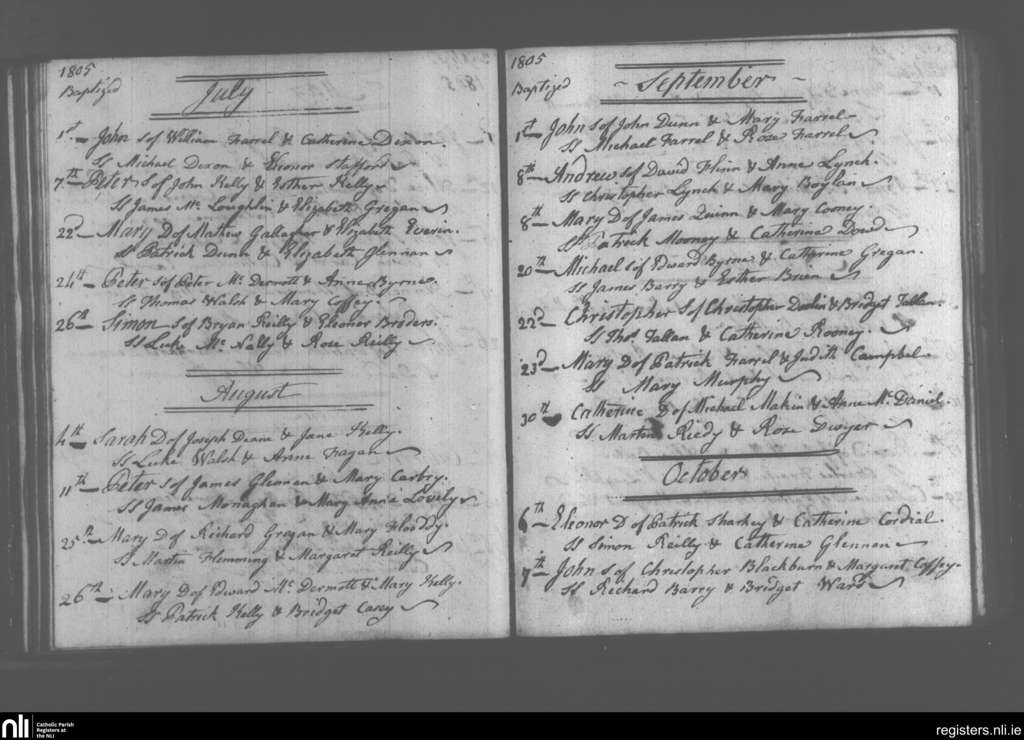 1805
Baptized
July
1st John S of William Farrel & Catherine Dexon.
Ss Michael Dexon & Elionor Stafford
7th Peter S of John Kelly & Esther Kelly
Ss James Mc Loughlin & Elizabeth Gregan
22d Mary D of Mathias Gallagher & Elizabeth Everin.
Ss Patrick Dunn & Elizabeth Glennan
24th Peter S of Peter Mc Dermott & Anne Byrne.
Ss Thomas Walsh & Mary Coffey.
26th Simon S of Bryan Reilly & Eleonor Broders.
Ss Luke Mc Nally & Rose Reilly
August
4th Sarah D of Joseph Deane & Jane Kelly.
Ss Luke Walsh & Anne Fagan
11th Peter S of James Glennan & Mary Carbry.
Ss James Monaghan & Mary Anne Lovely
25th Mary D of Richard Gregan & Mary
Ss Martin Flemming & Margaret Reilly
26th Mary D of Edward Mc Dermott & Mary Kelly.
Ss Patrick Kelly & Bridget Casey
1805
Baptized
September
1st John S of John Dunn & Mary Farrel
Ss Michael Farrel & Rose Farrel
8th Andrew S of David Flinn & Anne Lynch.
Ss Christopher Lynch & Mary Boylan
8th Mary D of James Quinn & Mary Cooney.
Ss Patrick Mooney & Catherine Dowd
20th Michael S of Edward Byrne & Catherine Gregan.
Ss James Barry & Esther Brien
22d Christopher S of Christopher Doolin & Bridget Fallan.
Ss Thos. Fallan & Catherine Rooney.
23d Mary D of Patrick Farrel & Judith Campbel.
Ss Mary Murphy
30th Catherine D of Michael Makin & Anne Mc Daniel.
Ss Martin Reedy & Rose Dwyer
October
6th Eleonor D of Patrick Sharkey & Catherine Cordial.
Ss Simon Reilly & Catherine Glennan
7th John S of Christopher Blackburn & Margaret Coffey.
Ss Richard Barry & Bridget Ward
nli
Catholic Parish
Registers at
the NLI
registers.nli.ie